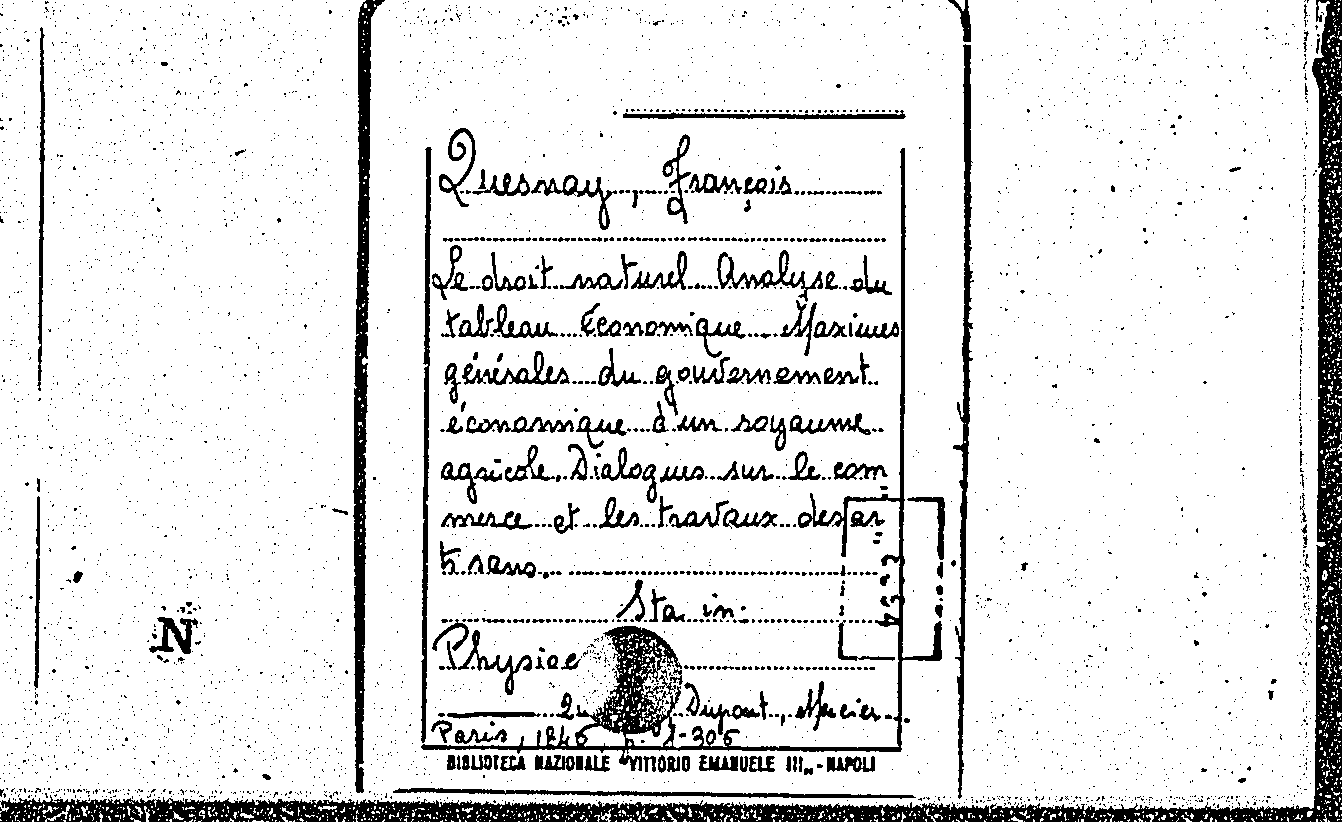 Quesnay, François
Le droit naturel. Analyse du
tableau Économique. Maximes
générales du gouvernement
économique d'un royaume
agricole. Dialogues sur le com
merce et les travaux des ar
tisans.
Sta in:
Physioc
Dupont, Mercier
Paris, 1846, p. 1-305
BIBLIOTECA NAZIONALE "VITTORIO EMANUELE III„ - NAPOLI
N